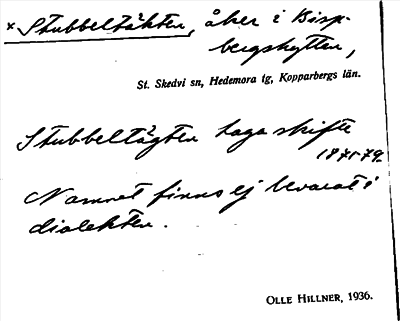 × Stubbeltäkten, åker i Bisp-
bergshyttan,
St. Skedvi sn, Hedemora tg, Kopparbergs län.
Stubbeltägten laga skifte
1871-79.
Namnet finns ej bevarat i
dialekten.
OLLE HILLNER, 1936.